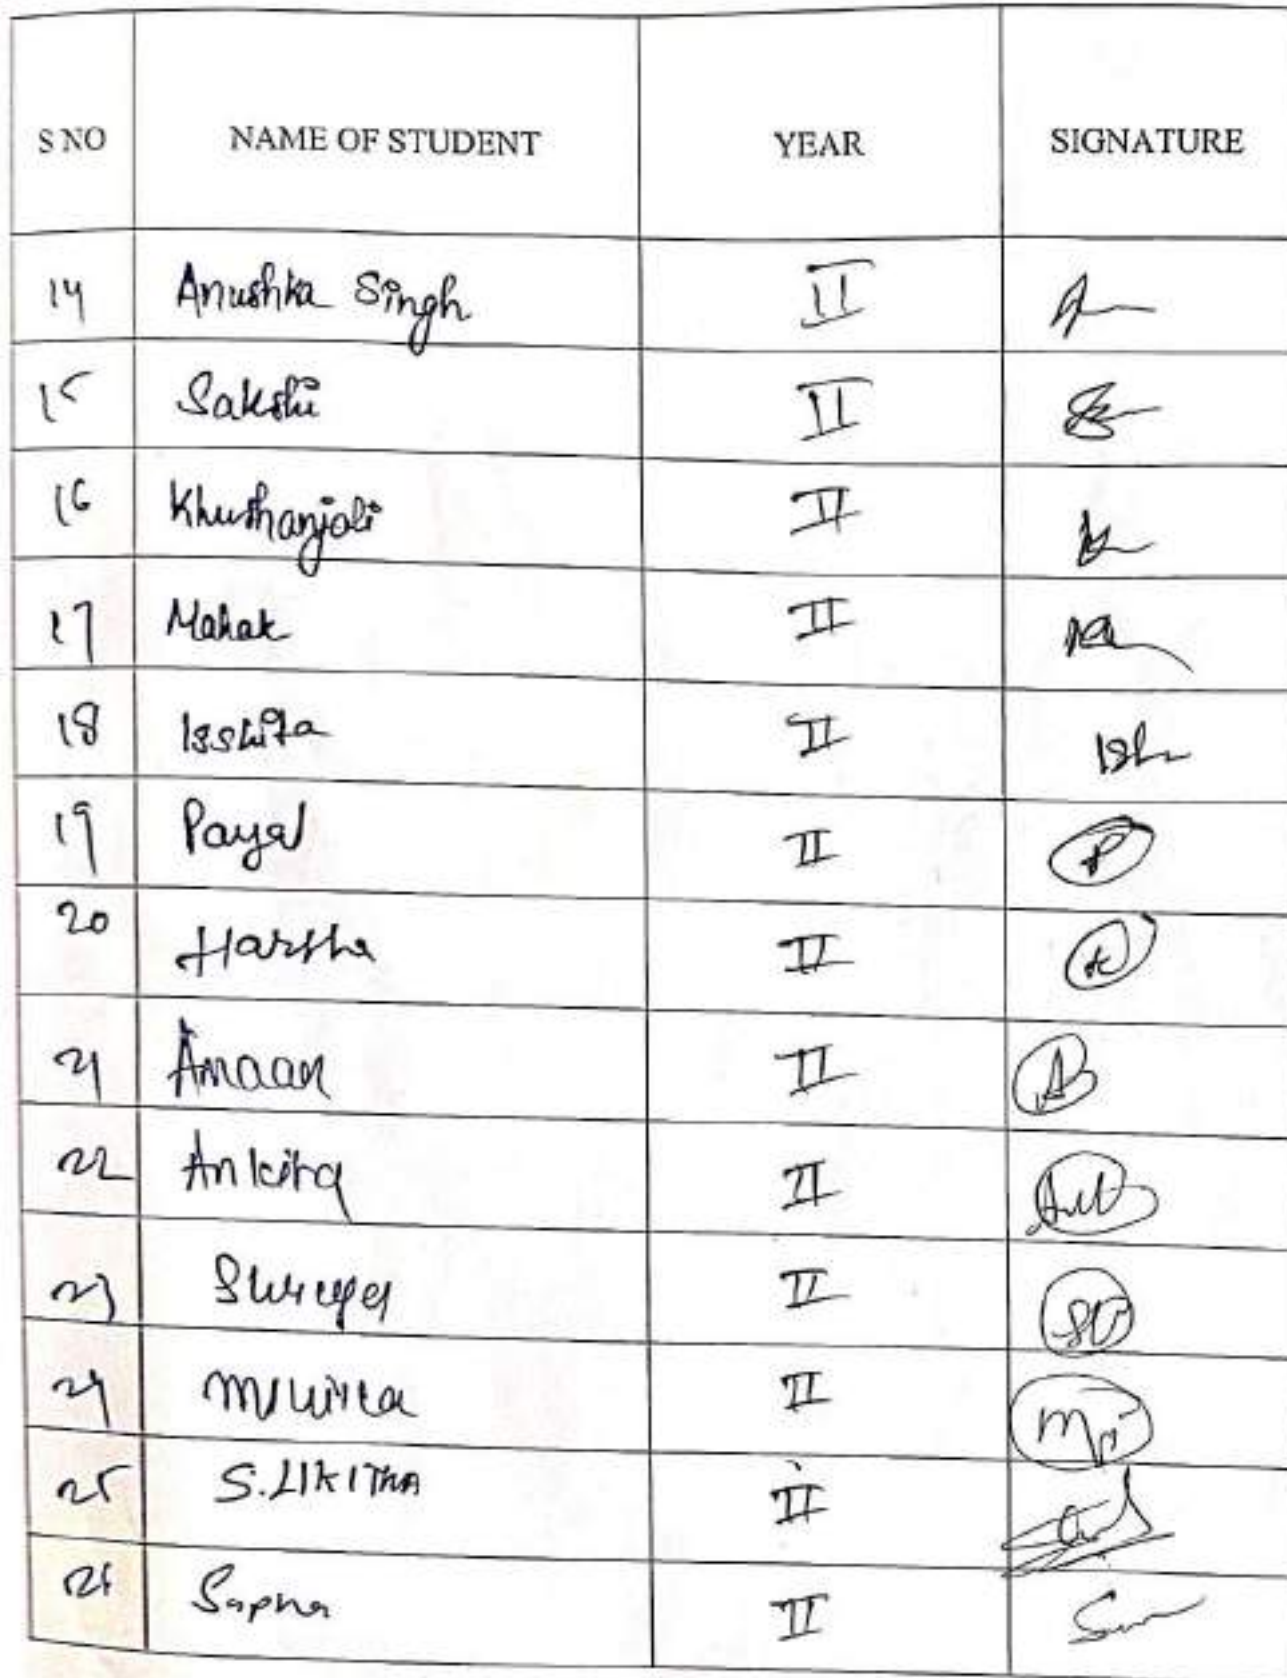 S NO NAME OF STUDENT YEAR SIGNATURE
14 Anushka Singh II
15 Sakshi II
16 Khushanjali II
17 Mahak II
18 Isshita II Ish
19 Payal II P
20 Harsha II
21 Amaan II A
22 Ankita II
23 Shreya II
24 II
25 S. LIKITHA II
26 Sapna II